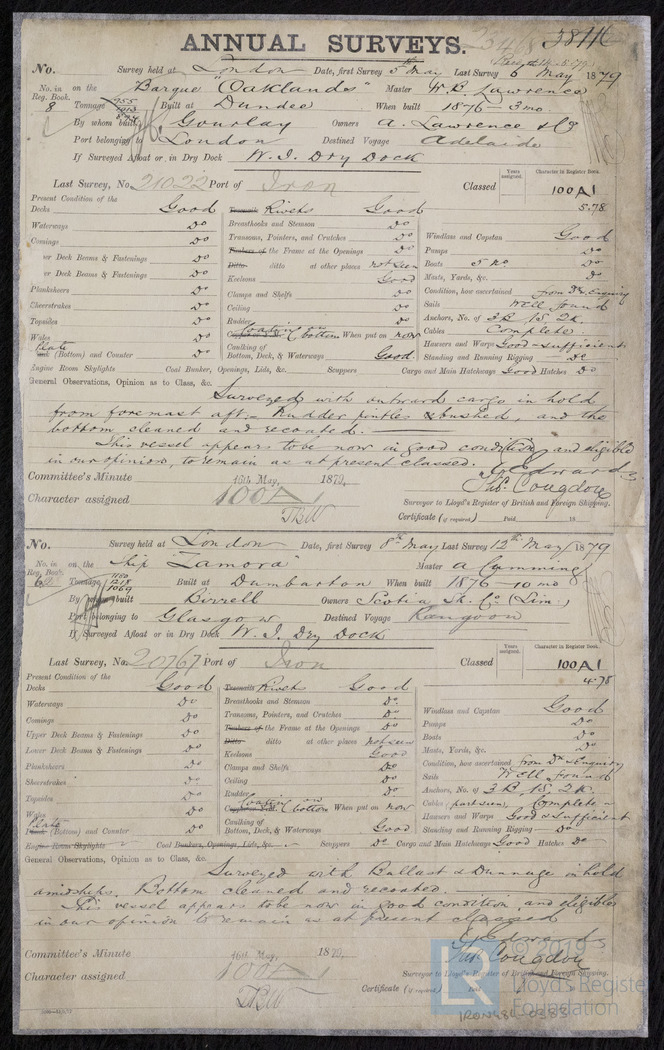 ANNUAL SURVEYS.
38116
No. Survey held at London Date, first Survey 5th May Last Survey 6 May 1879
No. in Reg. Book. on the Barque "Oaklands" Master W. B. Lawrence
8 Tonnage Built at Dundee When built 1876 - 3 mo
By whom built Gourlay Owners A. Lawrence & Co
Port belonging to London Destined Voyage Adelaide
If Surveyed Afloat or in Dry Dock W. I. Dry Dock
Last Survey, No. 21022 Port of Iron Classed 100A1
Years assigned. Character in Register Book.
5.78
Present Condition of the
Decks Good
Waterways Do
Comings Do
or Deck Beams & Fastenings Do
or Deck Beams & Fastenings Do
Planksheers Do
Sheerstrakes Do
Topsides Do
Wales Do
Plate (Bottom) and Counter Do
Treenails Rivets Good
Breasthooks and Stemson Do
Transoms, Pointers, and Crutches Do
Timbers of the Frame at the Openings Do
Ditto ditto at other places not seen
Keelsons Good
Clamps and Shelfs Do
Ceiling Do
Rudder Do
Coating on bottom When put on now
Caulking of Bottom, Deck, & Waterways Good
Windlass and Capstan Good
Pumps Do
Boats 5 No. Do
Masts, Yards, &c. Do
Condition, how ascertained from Dk & Enquiry
Sails Well found
Anchors, No. of 3B. 1S. 2K.
Cables Complete
Hawsers and Warps Good & sufficient
Standing and Running Rigging Do
Engine Room Skylights Coal Bunker, Openings, Lids, &c. Scuppers Cargo and Main Hatchways Good Hatches Do
General Observations, Opinion as to Class, &c.
Surveyed with outward cargo in hold
from foremast aft. Rudder pintles bushed, and the
bottom cleaned and recoated.
This vessel appears to be now in good condition, and eligible
in our opinion, to remain as at present classed.
Committee's Minute 16th May, 1879,
Character assigned 100A1
Jas. Congdon
Surveyor to Lloyd's Register of British and Foreign Shipping.
TBW
Certificate (if required) Paid 18
No. Survey held at London Date, first Survey 8th May Last Survey 12th May 1879
No. in Reg. Book. on the Ship "Zamora" Master A Cumming
Tonnage 1218 1069 Built at Dumbarton When built 1876 - 10 mo
By whom built Birrell Owners Scotia Sh. Co. (Lim.)
Port belonging to Glasgow Destined Voyage Rangoon
If Surveyed Afloat or in Dry Dock W. I. Dry Dock
Last Survey, No. 20767 Port of Iron Classed 100A1
Years assigned. Character in Register Book.
4.78
Present Condition of the
Decks Good
Waterways Do
Comings Do
Upper Deck Beams & Fastenings Do
Lower Deck Beams & Fastenings Do
Planksheers Do
Sheerstrakes Do
Topsides Do
Wales Do
Plate (Bottom) and Counter Do
Treenails Rivets Good
Breasthooks and Stemson Do
Transoms, Pointers, and Crutches Do
Timbers of the Frame at the Openings Do
Ditto ditto at other places not seen
Keelsons Good
Clamps and Shelfs Do
Ceiling Do
Rudder Do
Coating on bottom When put on now
Caulking of Bottom, Deck, & Waterways Good
Windlass and Capstan Good
Pumps Do
Boats Do
Masts, Yards, &c. Do
Condition, how ascertained from Dk & Enquiry
Sails Well found
Anchors, No. of 3B. 1S. 2K.
Cables part seen, Complete
Hawsers and Warps Good & sufficient
Standing and Running Rigging Do
Engine Room Skylights Coal Bunkers, Openings, Lids, &c. Scuppers Do Cargo and Main Hatchways Good Hatches Do
General Observations, Opinion as to Class, &c.
Surveyed with Ballast & Dunnage in hold
amidships. Bottom cleaned and recoated.
This vessel appears to be now in good condition, and eligible
in our opinion to remain as at present classed
Committee's Minute 16th May, 1879,
Character assigned 100A1
Jas. Congdon
Surveyor to Lloyd's Register of British and Foreign Shipping.
TBW
Certificate (if required)
© 2019
Lloyd's Register
Foundation
IRON986-0383